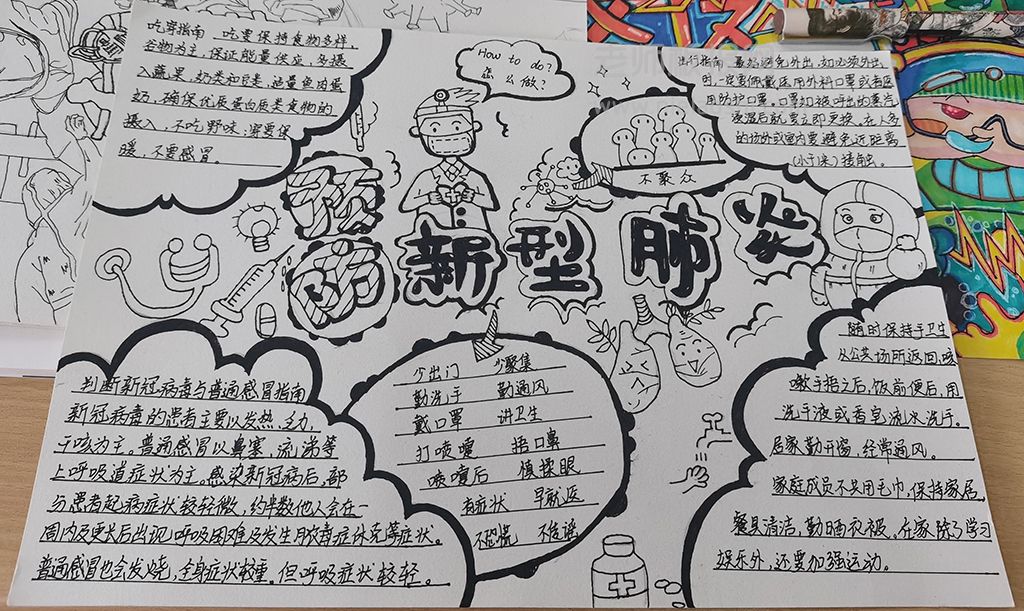 吃穿指南  吃要保持食物多样,
谷物为主,保证能量供应,多摄
入蔬果、奶类和豆类,适量鱼肉蛋
奶,确保优质蛋白质类食物的
摄入,不吃野味,穿要保
暖,不要感冒。
How to do?
怎么做?
出行指南  最好避免外出,如必须外出
时,一定要佩戴医用外科口罩或者医
用防护口罩,口罩如被呼出的蒸汽
浸湿后就要立即更换,在人多
的场外或室内要避免近距离
(小于米)接触。
不聚众
预防新型肺炎
判断新冠病毒与普通感冒指南
新冠病毒的患者主要以发热,乏力,
干咳为主。普通感冒以鼻塞、流涕等
上呼吸道症状为主。感染新冠病后,部
分患者起病症状较轻微,约半数他人会在一
周内及更长后出现,呼吸困难及发生脓毒症休克等症状。
普通感冒也会发烧,全身症状较重。但呼吸症状较轻。
少出门  少聚集
勤洗手  勤通风
戴口罩  讲卫生
打喷嚏  捂口鼻
喷嚏后  慎揉眼
有症状  早就医
不恐慌  不传谣
随时保持手卫生
从公共场所返回,咳
嗽手捂之后,饭前便后,用
洗手液或香皂流水洗手。
居家勤开窗,经常通风。
家庭成员不共用毛巾,保持家居、
餐具清洁,勤晒衣被。在家除了学习
娱乐外,还要加强运动。